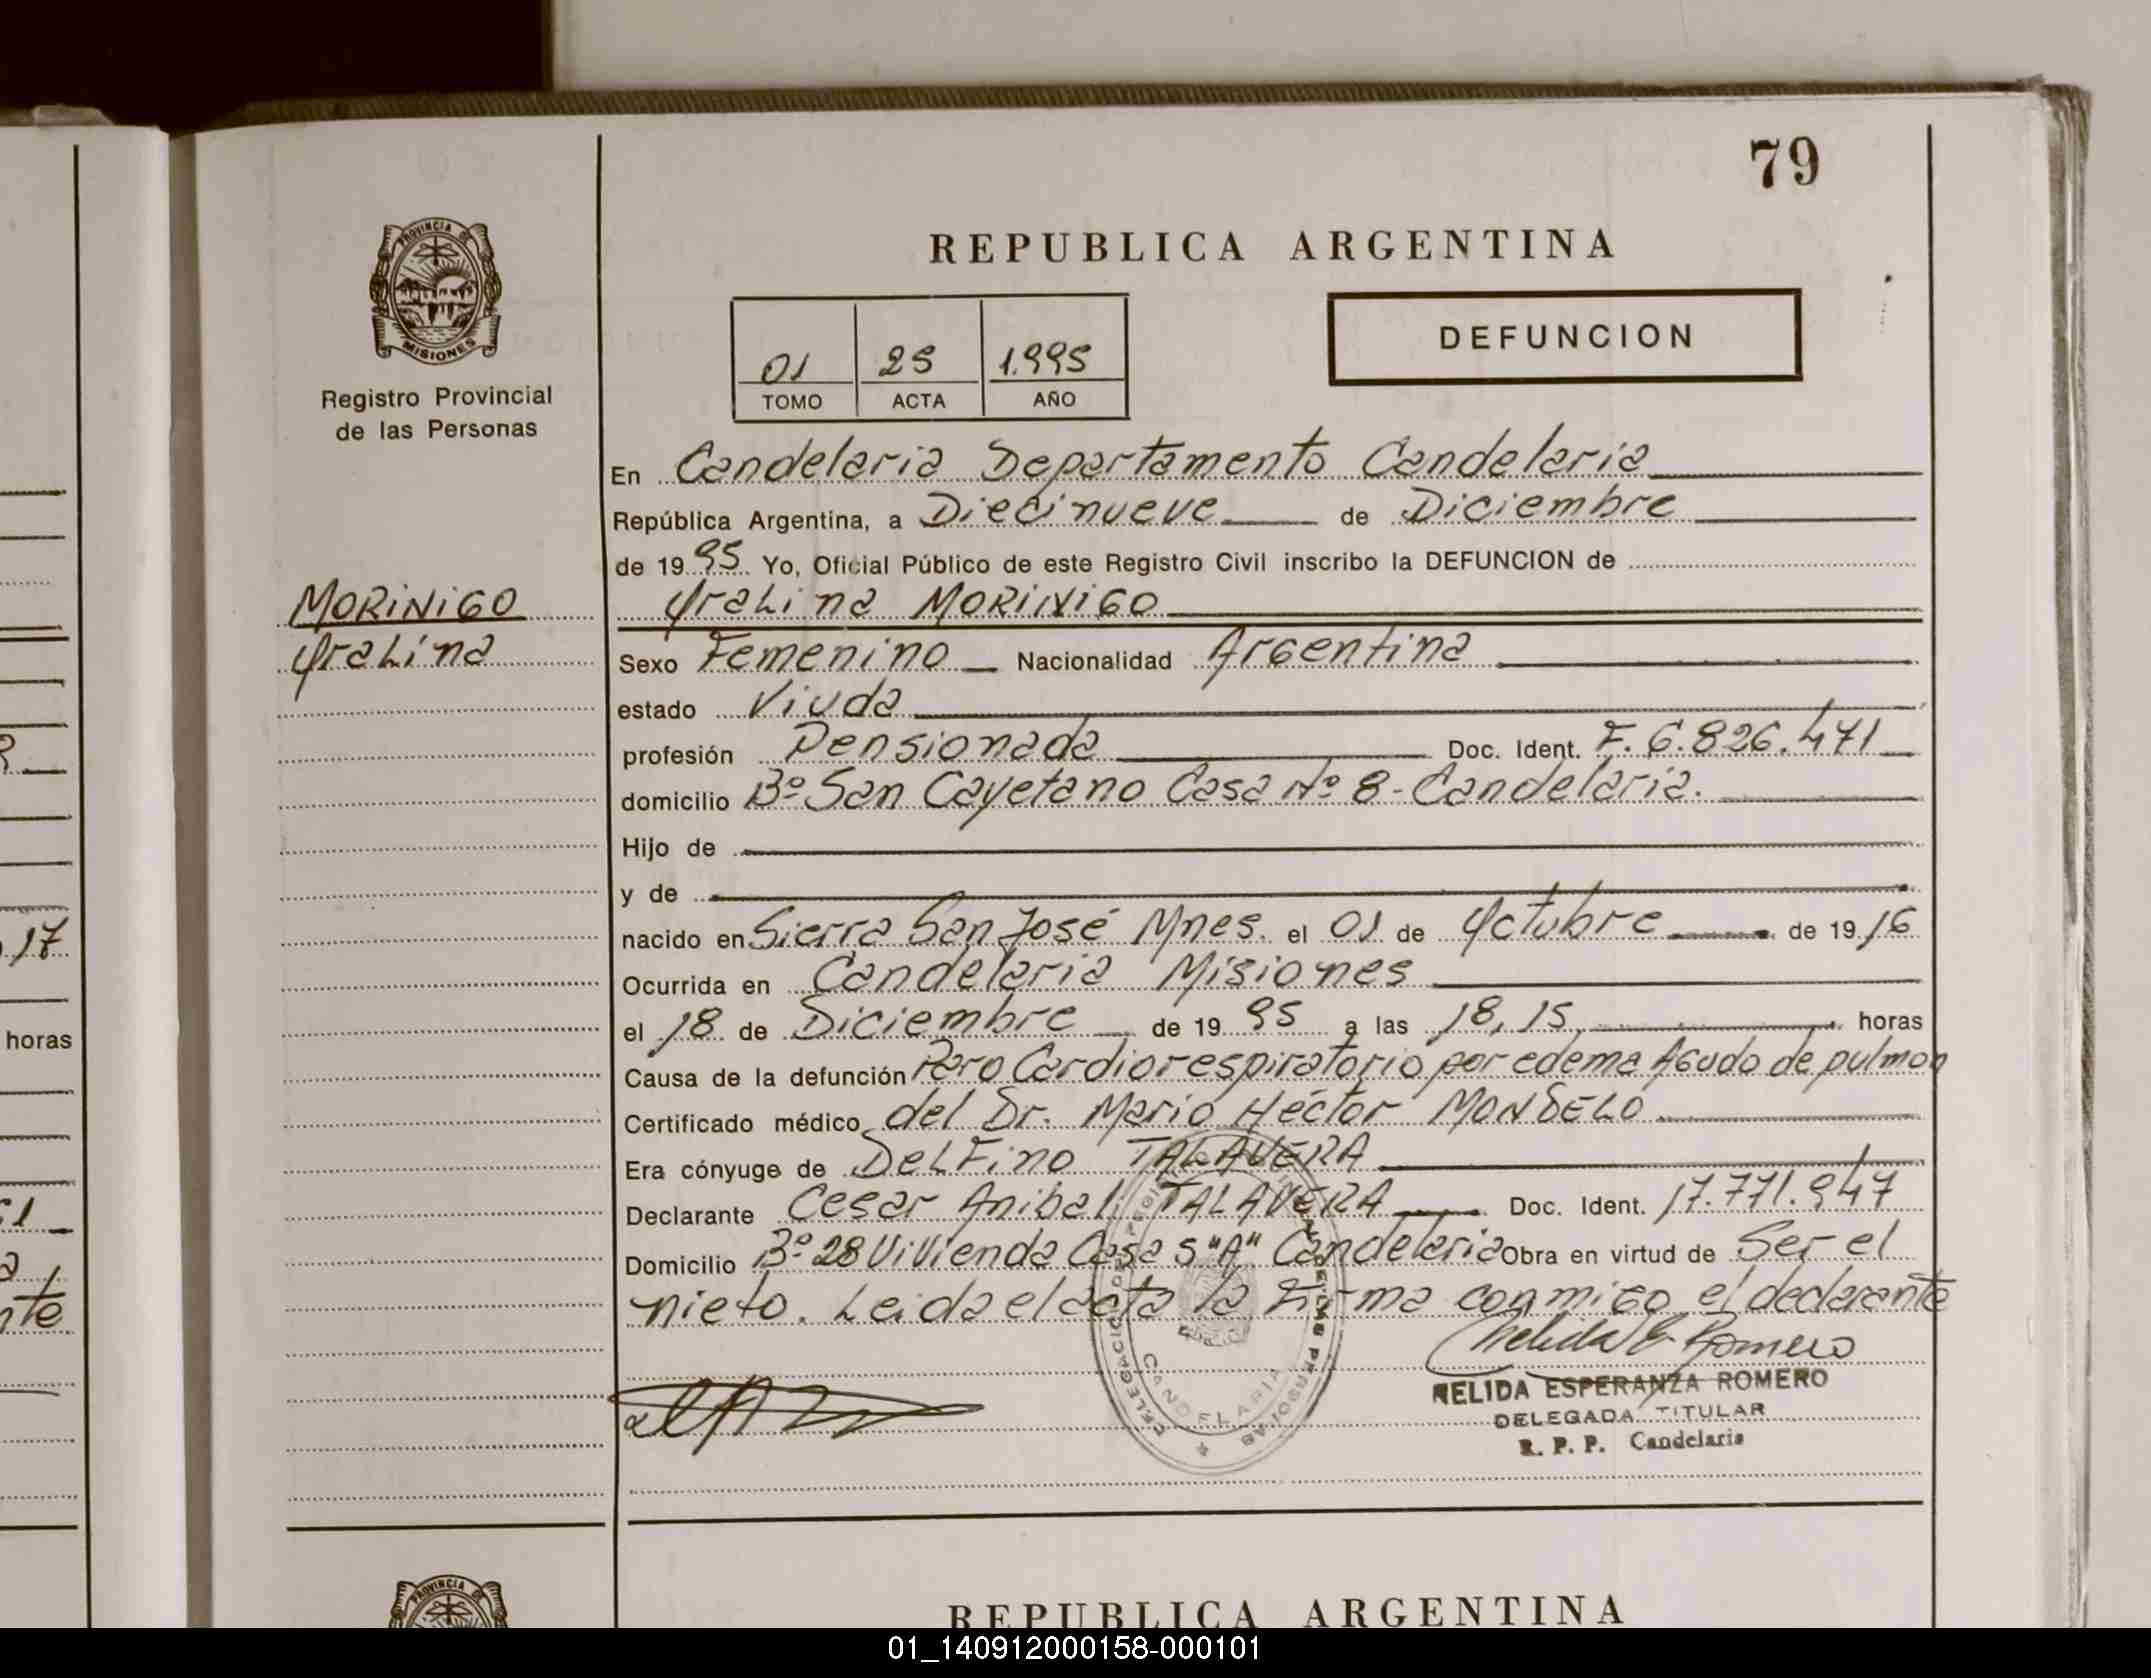 79
PROVINCIA DE
MISIONES
Registro Provincial
de las Personas
REPUBLICA ARGENTINA
DEFUNCION
01 25 1.995
TOMO ACTA AÑO
En Candelaria Departamento Candelaria
República Argentina, a Diecinueve de Diciembre
de 1995 Yo, Oficial Público de este Registro Civil inscribo la DEFUNCION de
MORINIGO
MORINIGO
Sexo Femenino Nacionalidad Argentina
estado Viuda
profesión Pensionada Doc. Ident. F. 6.826.471
domicilio Bº San Cayetano Casa Nº 8 - Candelaria.
Hijo de
y de
nacido en Sierra San José Mnes. el 01 de Octubre de 1916
Ocurrida en Candelaria Misiones
el 18 de Diciembre de 1995 a las 18,15 horas
Causa de la defunción Paro Cardiorespiratorio por edema Agudo de pulmon
Certificado médico del Dr. Mario Héctor MONDELO
Era cónyuge de Delfino TALAVERA
Declarante Cesar Anibal TALAVERA Doc. Ident. 17.771.947
Domicilio Bº 28 Vivienda Casa 5 "A" Candelaria Obra en virtud de Ser el
nieto. Leida el acta la Firma conmigo el declarante
Nelida E. Romero
NELIDA ESPERANZA ROMERO
DELEGADA TITULAR
R. P. P. Candelaria
CANDELARIA
17
horas
PROVINCIA DE
REPUBLICA ARGENTINA
01_140912000158-000101